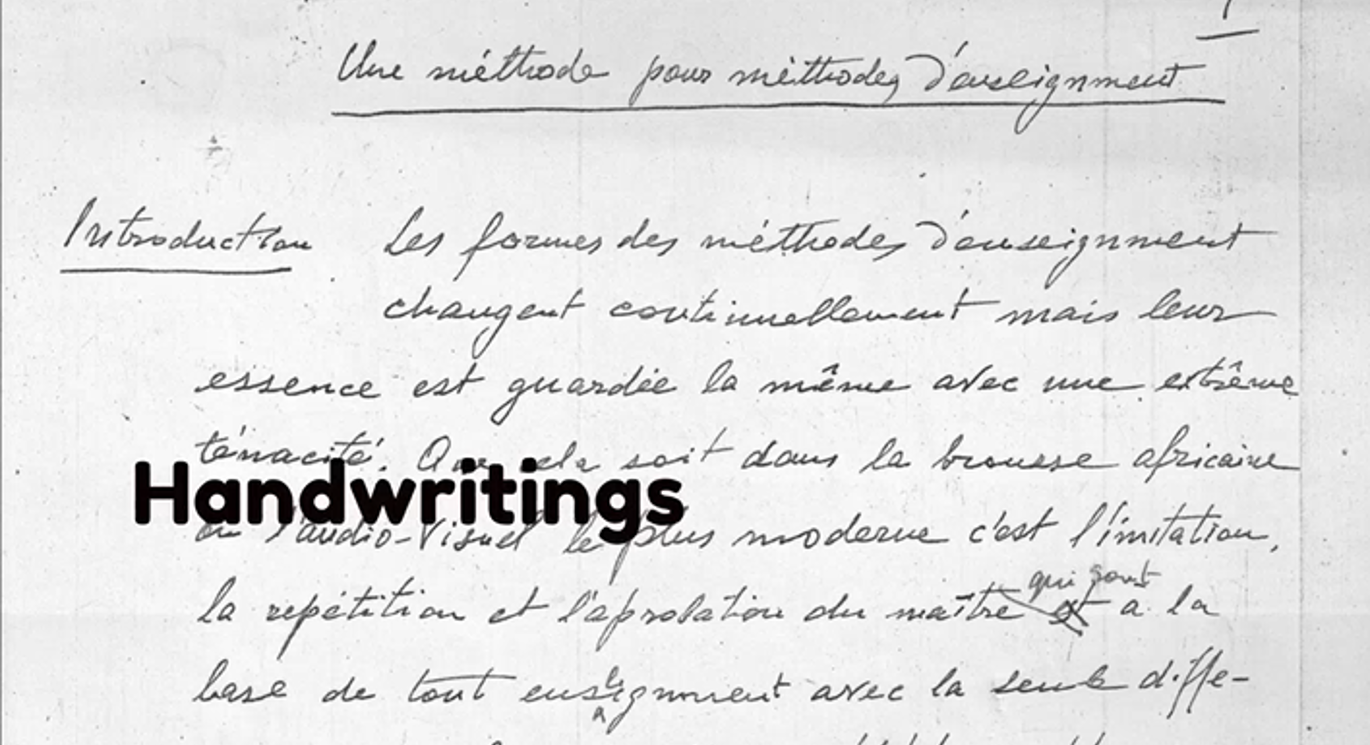 Une méthode pour méthodes d'enseignment
Introduction Les formes des méthodes d'enseignment
changent continuellement mais leur
essence est guardée la même avec une extrême
ténacité. Que cela soit dans la brousse africaine
Handwritings
ou l'audio-visuel le plus moderne c'est l'imitation,
qui sont
la repétition et l'aprobation du maître a la
base de tout enseignment avec la seule diffe-